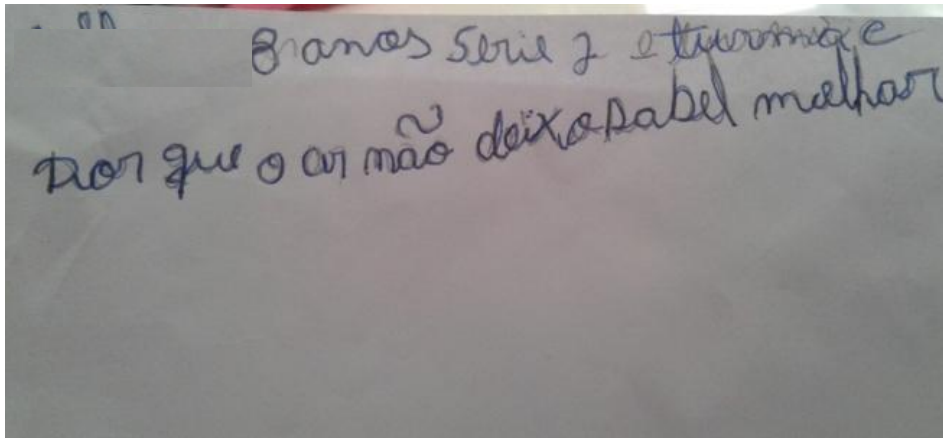 8 anos serie 2 e turma e
por que o ar não deixo pabel molhar